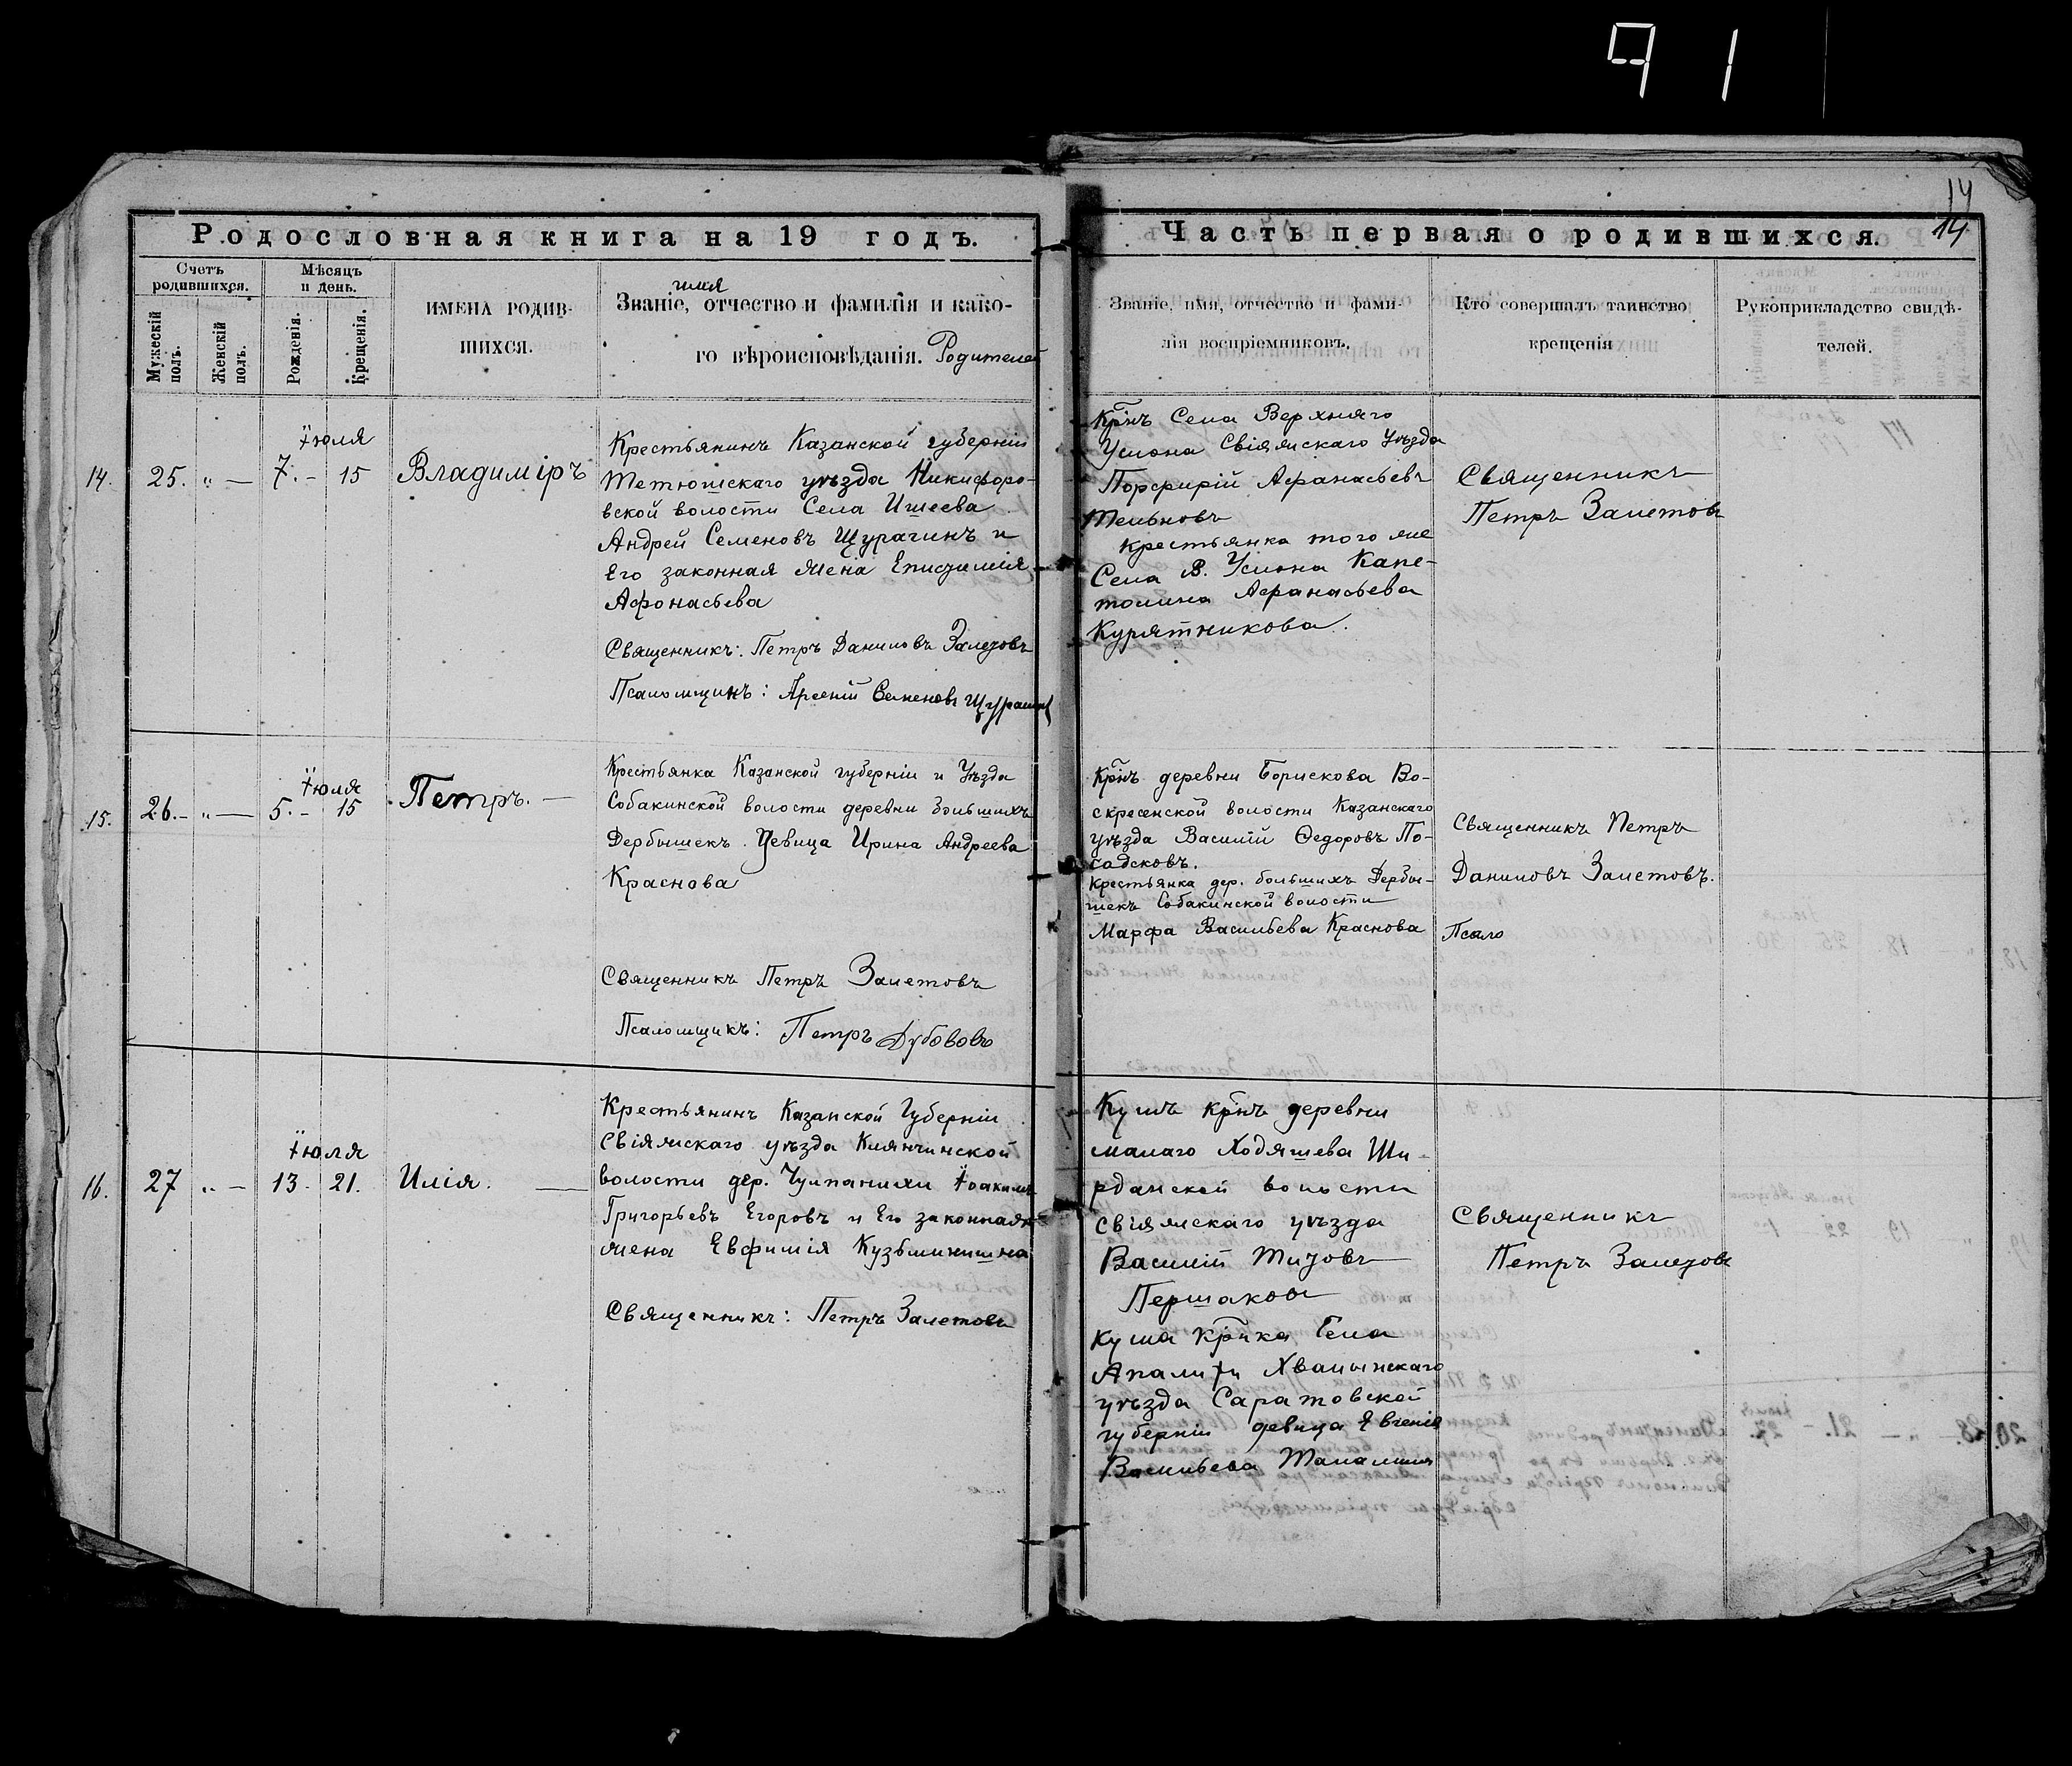 91
14
14
Родословная книга на 19 годъ.
Счетъ родившихся.
Мѣсяцъ и день.
Мужескій полъ.
Женскій полъ.
Рожденія.
Крещенія.
ИМЕНА РОДИВ-
ШИХСЯ.
имя
Званіе, отчество и фамилія и како-
го вѣроисповѣданія. Родителей
14.
25. „ —
Іюля
7. - 15
Владиміръ
Крестьянинъ Казанской губерніи
Тетюшскаго уѣзда Никифоро-
вской волости Села Ишеева
Андрей Семеновъ Щурагинъ и
Его законная жена Епистимія
Афонасьева
Священникъ: Петръ Даниловъ Залетовъ
Псаломщикъ: Арсеній Семеновъ
15.
26. - „ —
Іюля
5. - 15
Петръ. —
Крестьянка Казанской губерніи и Уѣзда
Собакинской волости деревни Большихъ
Дербышекъ. Девица Ирина Андреева
Краснова
Священникъ Петръ Залетовъ
Псаломщикъ: Петръ Дубововъ
16.
27 „ —
Іюля
13 - 21.
Илія. —
Крестьянинъ Казанской Губерніи
Свіяжскаго уѣзда Клянчинской
волости дер. Чулпанихи Іоакимъ
Григорьевъ Егоровъ и Его законная
жена Евфимія Кузьминишна
Священникъ: Петръ Залетовъ
Часть первая о родившихся.
Званіе, имя, отчество и фами-
лія воспріемниковъ.
Кто совершалъ таинство
крещенія
Рукоприкладство свидѣ-
телей.
Крнъ Села Верхняго
Услона Свіяжскаго Уѣзда
Порфирій Афанасьевъ
Тельновъ
крестьянка того же
Села В. Услона Капе-
толина Афанасьева
Курятникова.
Священникъ
Петръ Залетовъ
Крнъ деревни Борискова Во-
скресенской волости Казанскаго
уѣзда Василій Ѳедоровъ По-
садсковъ.
Крестьянка дер. большихъ Дербы-
шекъ Собакинской волости
Марфа Васильева Краснова
Священникъ Петръ
Даниловъ Залетовъ.
Псало
Кумъ крнъ деревни
малаго Ходяшева Ши-
рданской волости
Свіяжскаго уѣзда
Василій Титовъ
Першаковъ
кума Крнка Села
Апалихи Хвалынскаго
уѣзда Саратовской
губерніи девица Евгенія
Васильева
Священникъ
Петръ Залетовъ